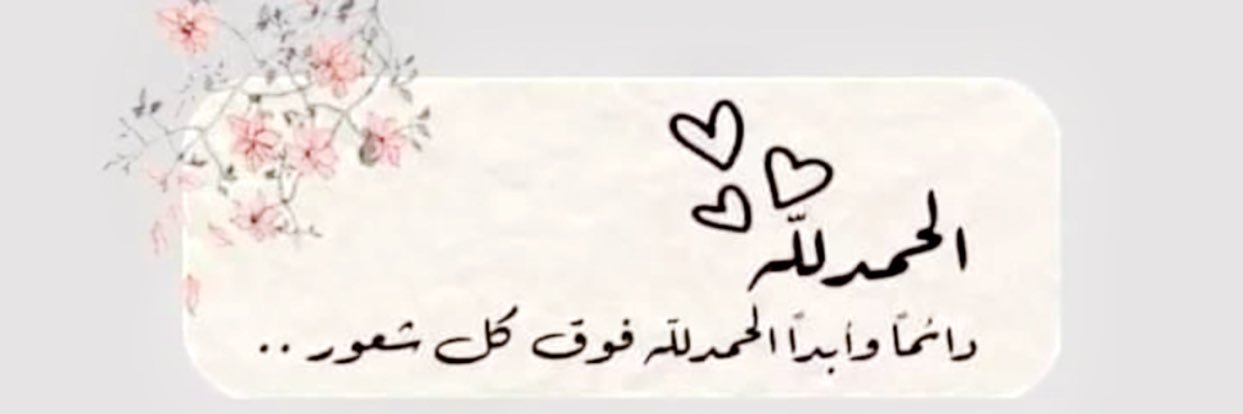 الحمدلله
دائماً وأبداً الحمدلله فوق كل شعور ..